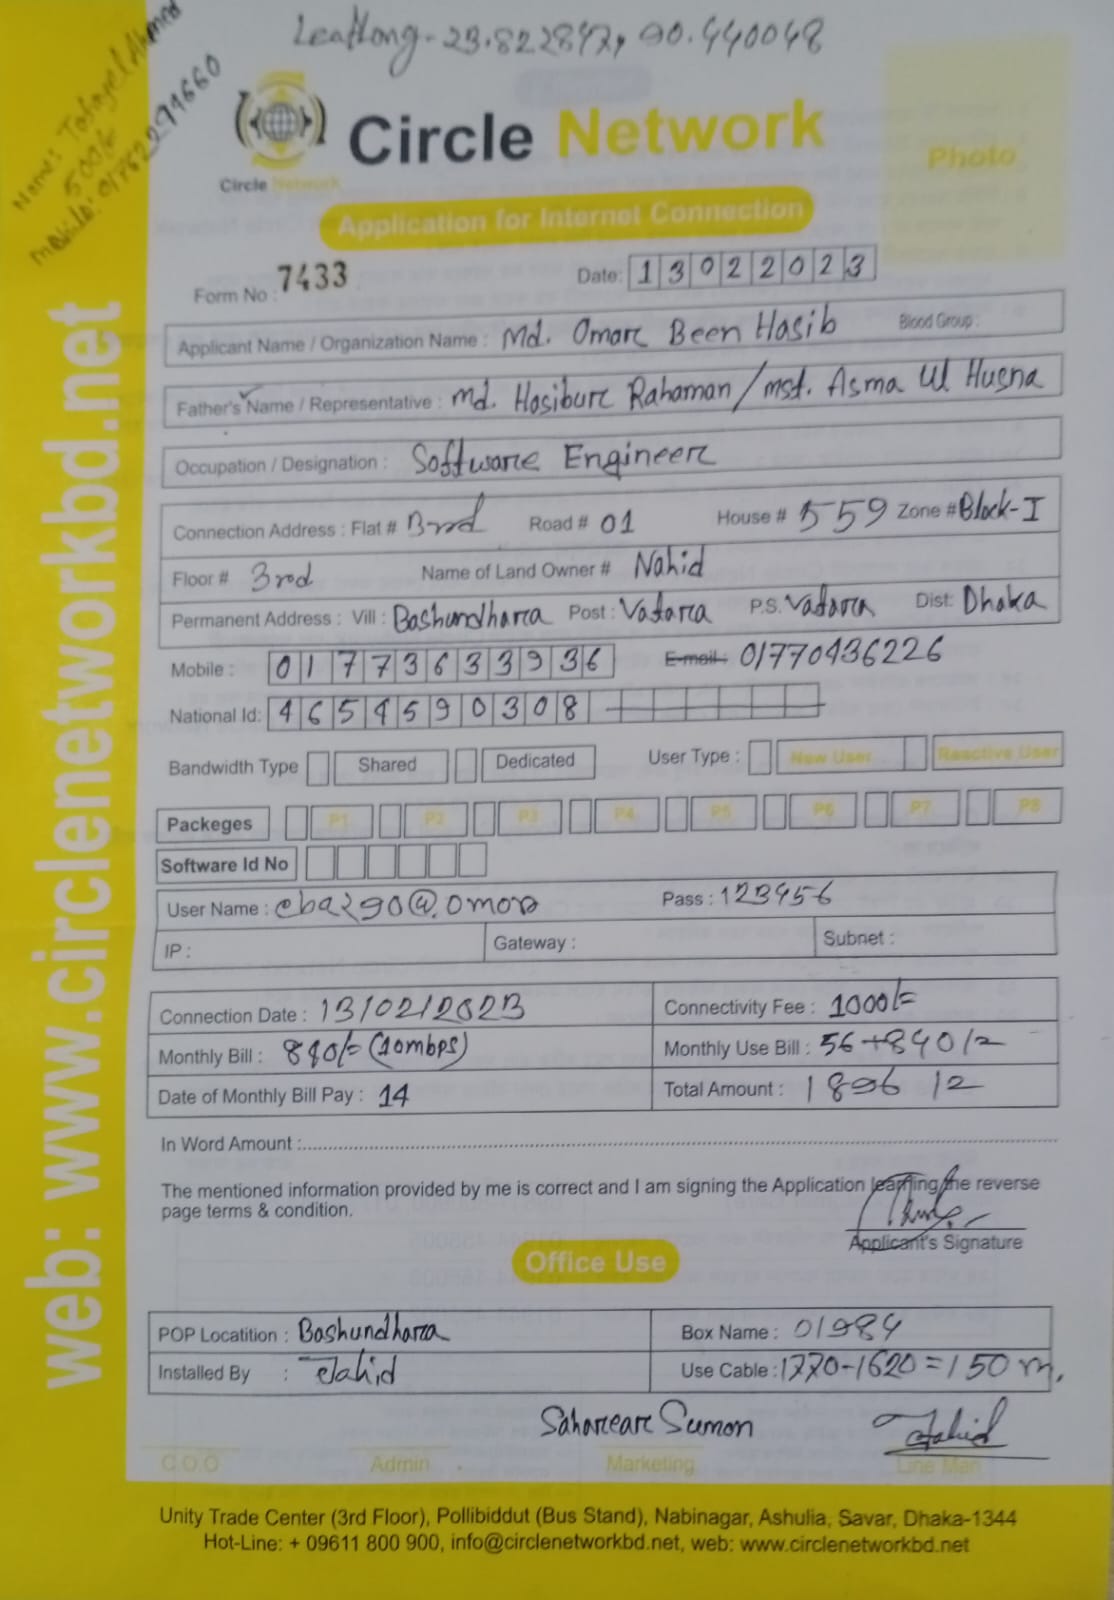 Leatlong- 23.822847, 90.440048
Name: Tofayel Ahmed
500/=
Mobile: 01762294660
Circle Network
Circle Network
Photo
Application for Internet Connection
Form No : 7433
Date: 13022023
Applicant Name / Organization Name : Md. Omar Been Hasib Blood Group :
Father's Name / Representative : Md. Hasibur Rahaman / mst. Asma Ul Husna
Occupation / Designation : Software Engineer
Connection Address : Flat # 3rd Road # 01 House # 559 Zone # Block-I
Floor # 3rd Name of Land Owner # Nahid
Permanent Address : Vill : Bashundhara Post : Vatara P.S. Vatara Dist: Dhaka
Mobile : 01773633936 E-mail: 01770436226
National Id: 4654590308
Bandwidth Type Shared Dedicated User Type : New User Reactive User
Packeges P1 P2 P3 P4 P5 P6 P7 P8
Software Id No
User Name : cba290@.omor Pass : 123456
IP : Gateway : Subnet :
Connection Date : 13/02/2023 Connectivity Fee : 1000/=
Monthly Bill : 840/= (10mbps) Monthly Use Bill : 56+840/=
Date of Monthly Bill Pay : 14 Total Amount : 1896/=
In Word Amount :
The mentioned information provided by me is correct and I am signing the Application learning the reverse
page terms & condition.
Applicant's Signature
Office Use
POP Locatition : Bashundhara Box Name : 01984
Installed By : Jahid Use Cable : 1770-1620=150 m.
Sahareare Sumon Jahid
C.O.O Admin Marketing Line Man
Unity Trade Center (3rd Floor), Pollibiddut (Bus Stand), Nabinagar, Ashulia, Savar, Dhaka-1344
Hot-Line: + 09611 800 900, info@circlenetworkbd.net, web: www.circlenetworkbd.net
web: www.circlenetworkbd.net